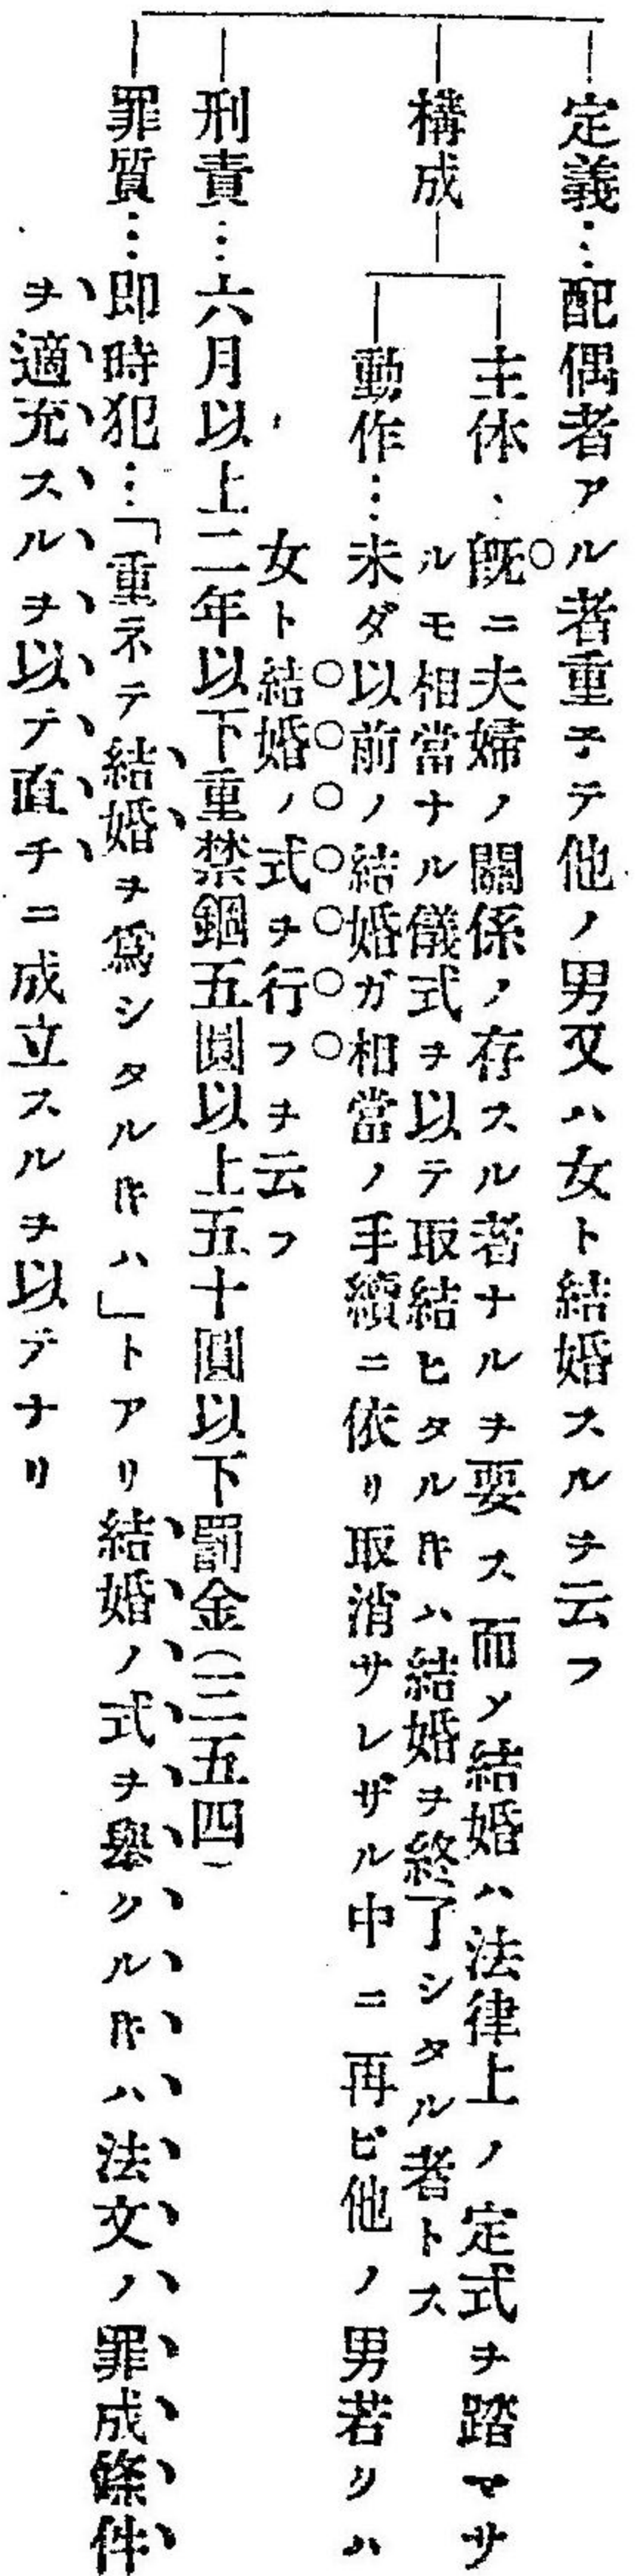 定義…配偶者アル者重子テ他ノ男又ハ女ト結婚スルヲ云フ
構成
主体、既ニ夫婦ノ關係ノ存スル者ナルヲ要ス而メ結婚ハ法律上ノ定式ヲ踏マサ
ルモ相當ナル儀式ヲ以テ取結ヒタル䏻ハ結婚ヲ終了シタル者トス
動作…未ダ以前ノ結婚ガ相當ノ手續ニ依リ取消サレザル中ニ再ビ他ノ男若クハ
女ト結婚ノ式ヲ行フヲ云フ
刑責…六月以上二年以下重禁錮五圓以上五十圓以下罰金(三五四)
罪質…即時犯…「重ネテ結婚ヲ爲シタル𪜈ハ」トアリ結婚ノ式ヲ舉クル𪜈ハ法文ノ罪成條件
ヲ適充スルヲ以テ直チニ成立スルヲ以テナリ